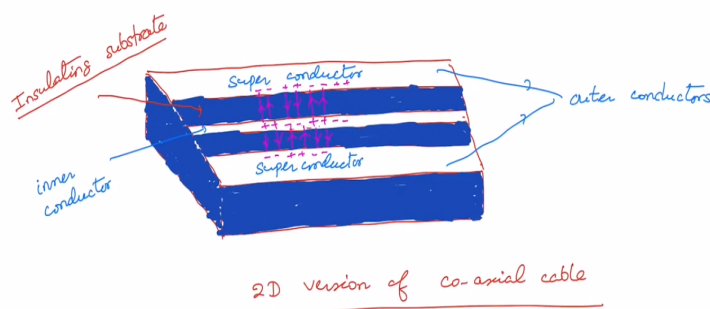 Insulating substrate
super conductor
- - + + - - + +
outer conductors
+ + - - + + - - -
- - + + - - -
super conductor
inner
conductor
2D version of co-axial cable